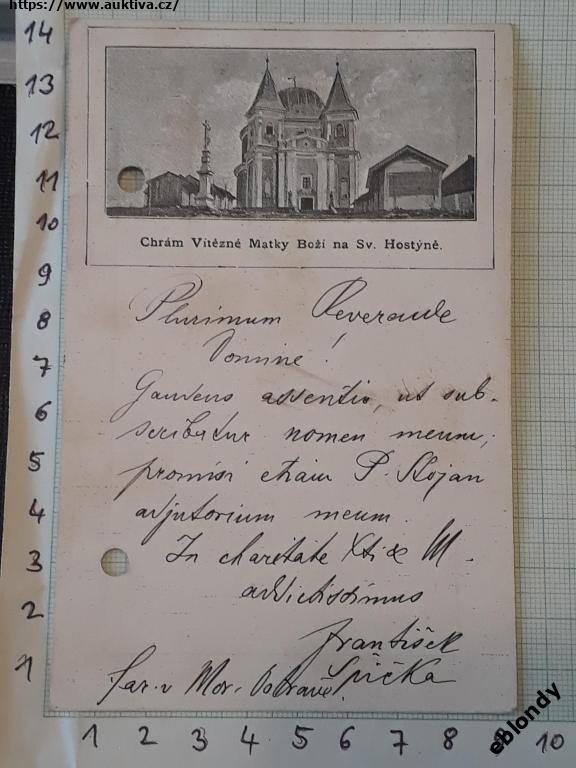 https://www.auktiva.cz/
14
13
12
11
10
9
8
7
6
5
4
3
2
1
Chrám Vítězné Matky Boží na Sv. Hostýně.
Plurimum Reverende
Domine!
Gaudens assentio, ut sub-
scribatur nomen meum;
promisi etiam P. Stojan
adjutorium meum.
In charitate Xti & M.
addictissimus
František
Špička
far. v Mor. Ostravě.
1 2 3 4 5 6 7 8 9 10
eblondy